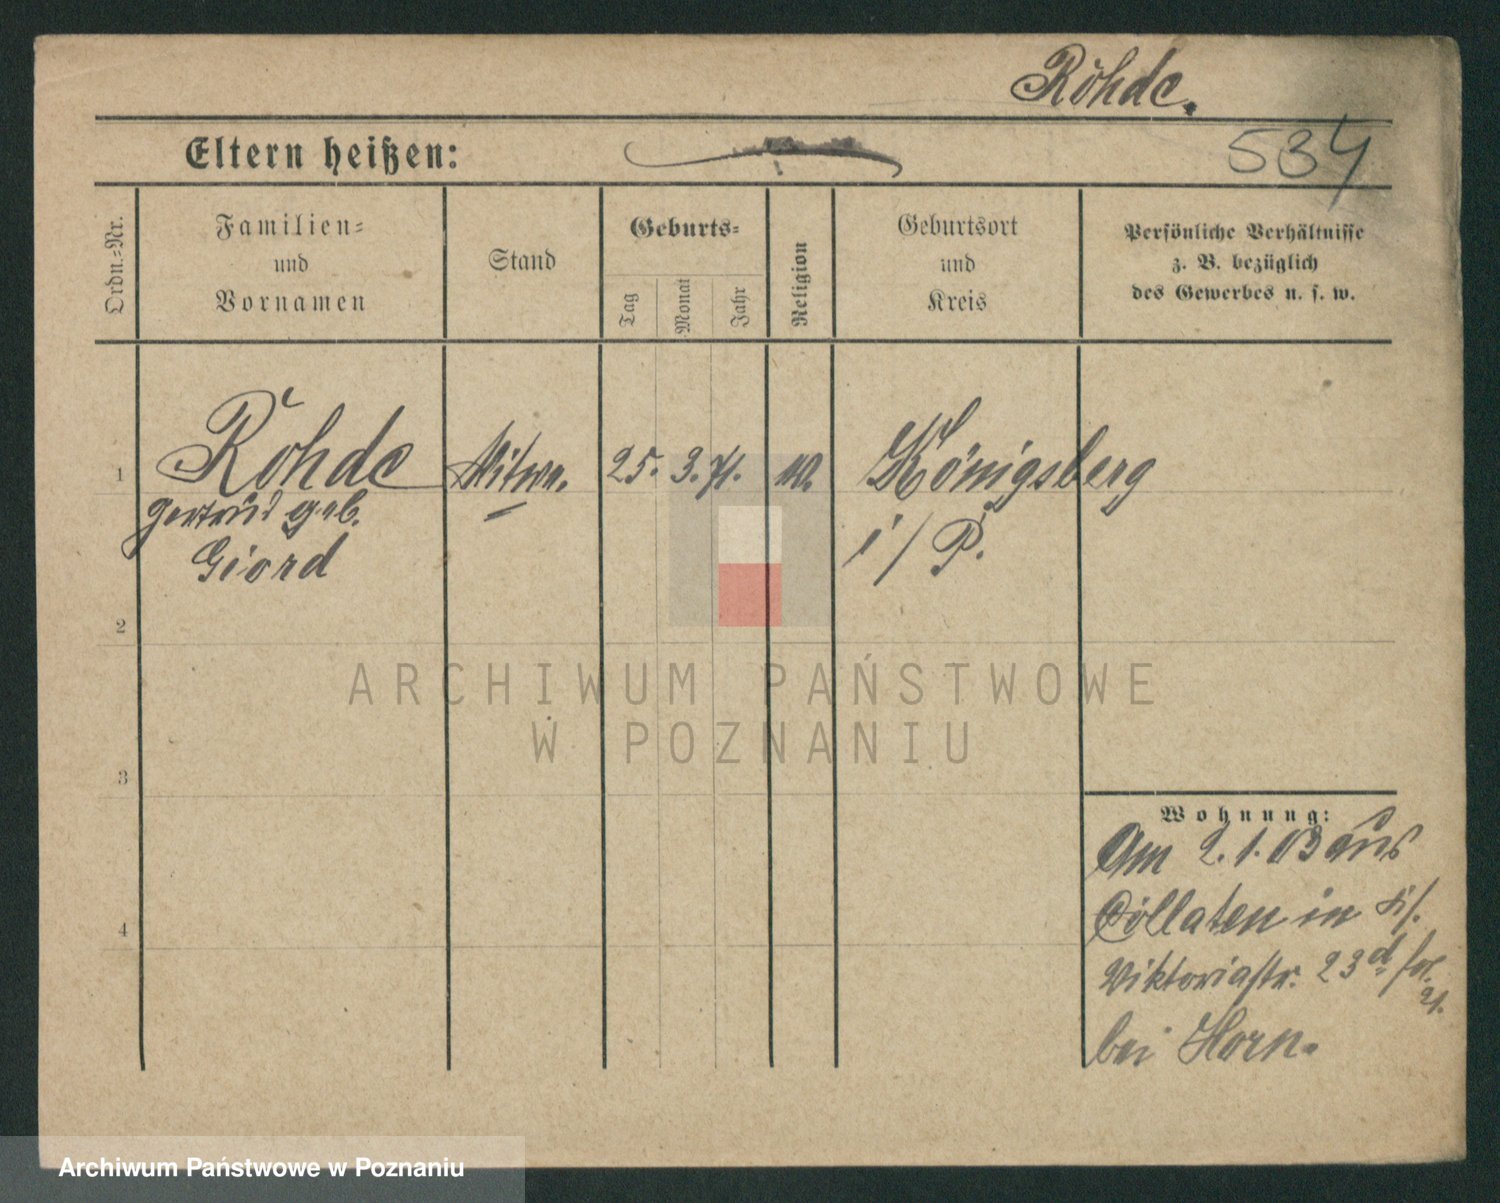 Röhde.
534
Eltern heißen:
Ordn.-Nr.
Familien-
und
Vornamen
Stand
Geburts-
Tag
Monat
Jahr
Religion
Geburtsort
und
Kreis
Persönliche Verhältnisse
z. B. bezüglich
des Gewerbes u. s. w.
1
Röhde
Gertrud geb.
Giord
Witwe.
25. 3. 71.
Königsberg
i/P.
2
3
4
Wohnung:
Am 2.1.03 aus
in
Viktoriastr. 23
bei Horn.
ARCHIWUM PAŃSTWOWE
W POZNANIU
Archiwum Państwowe w Poznaniu